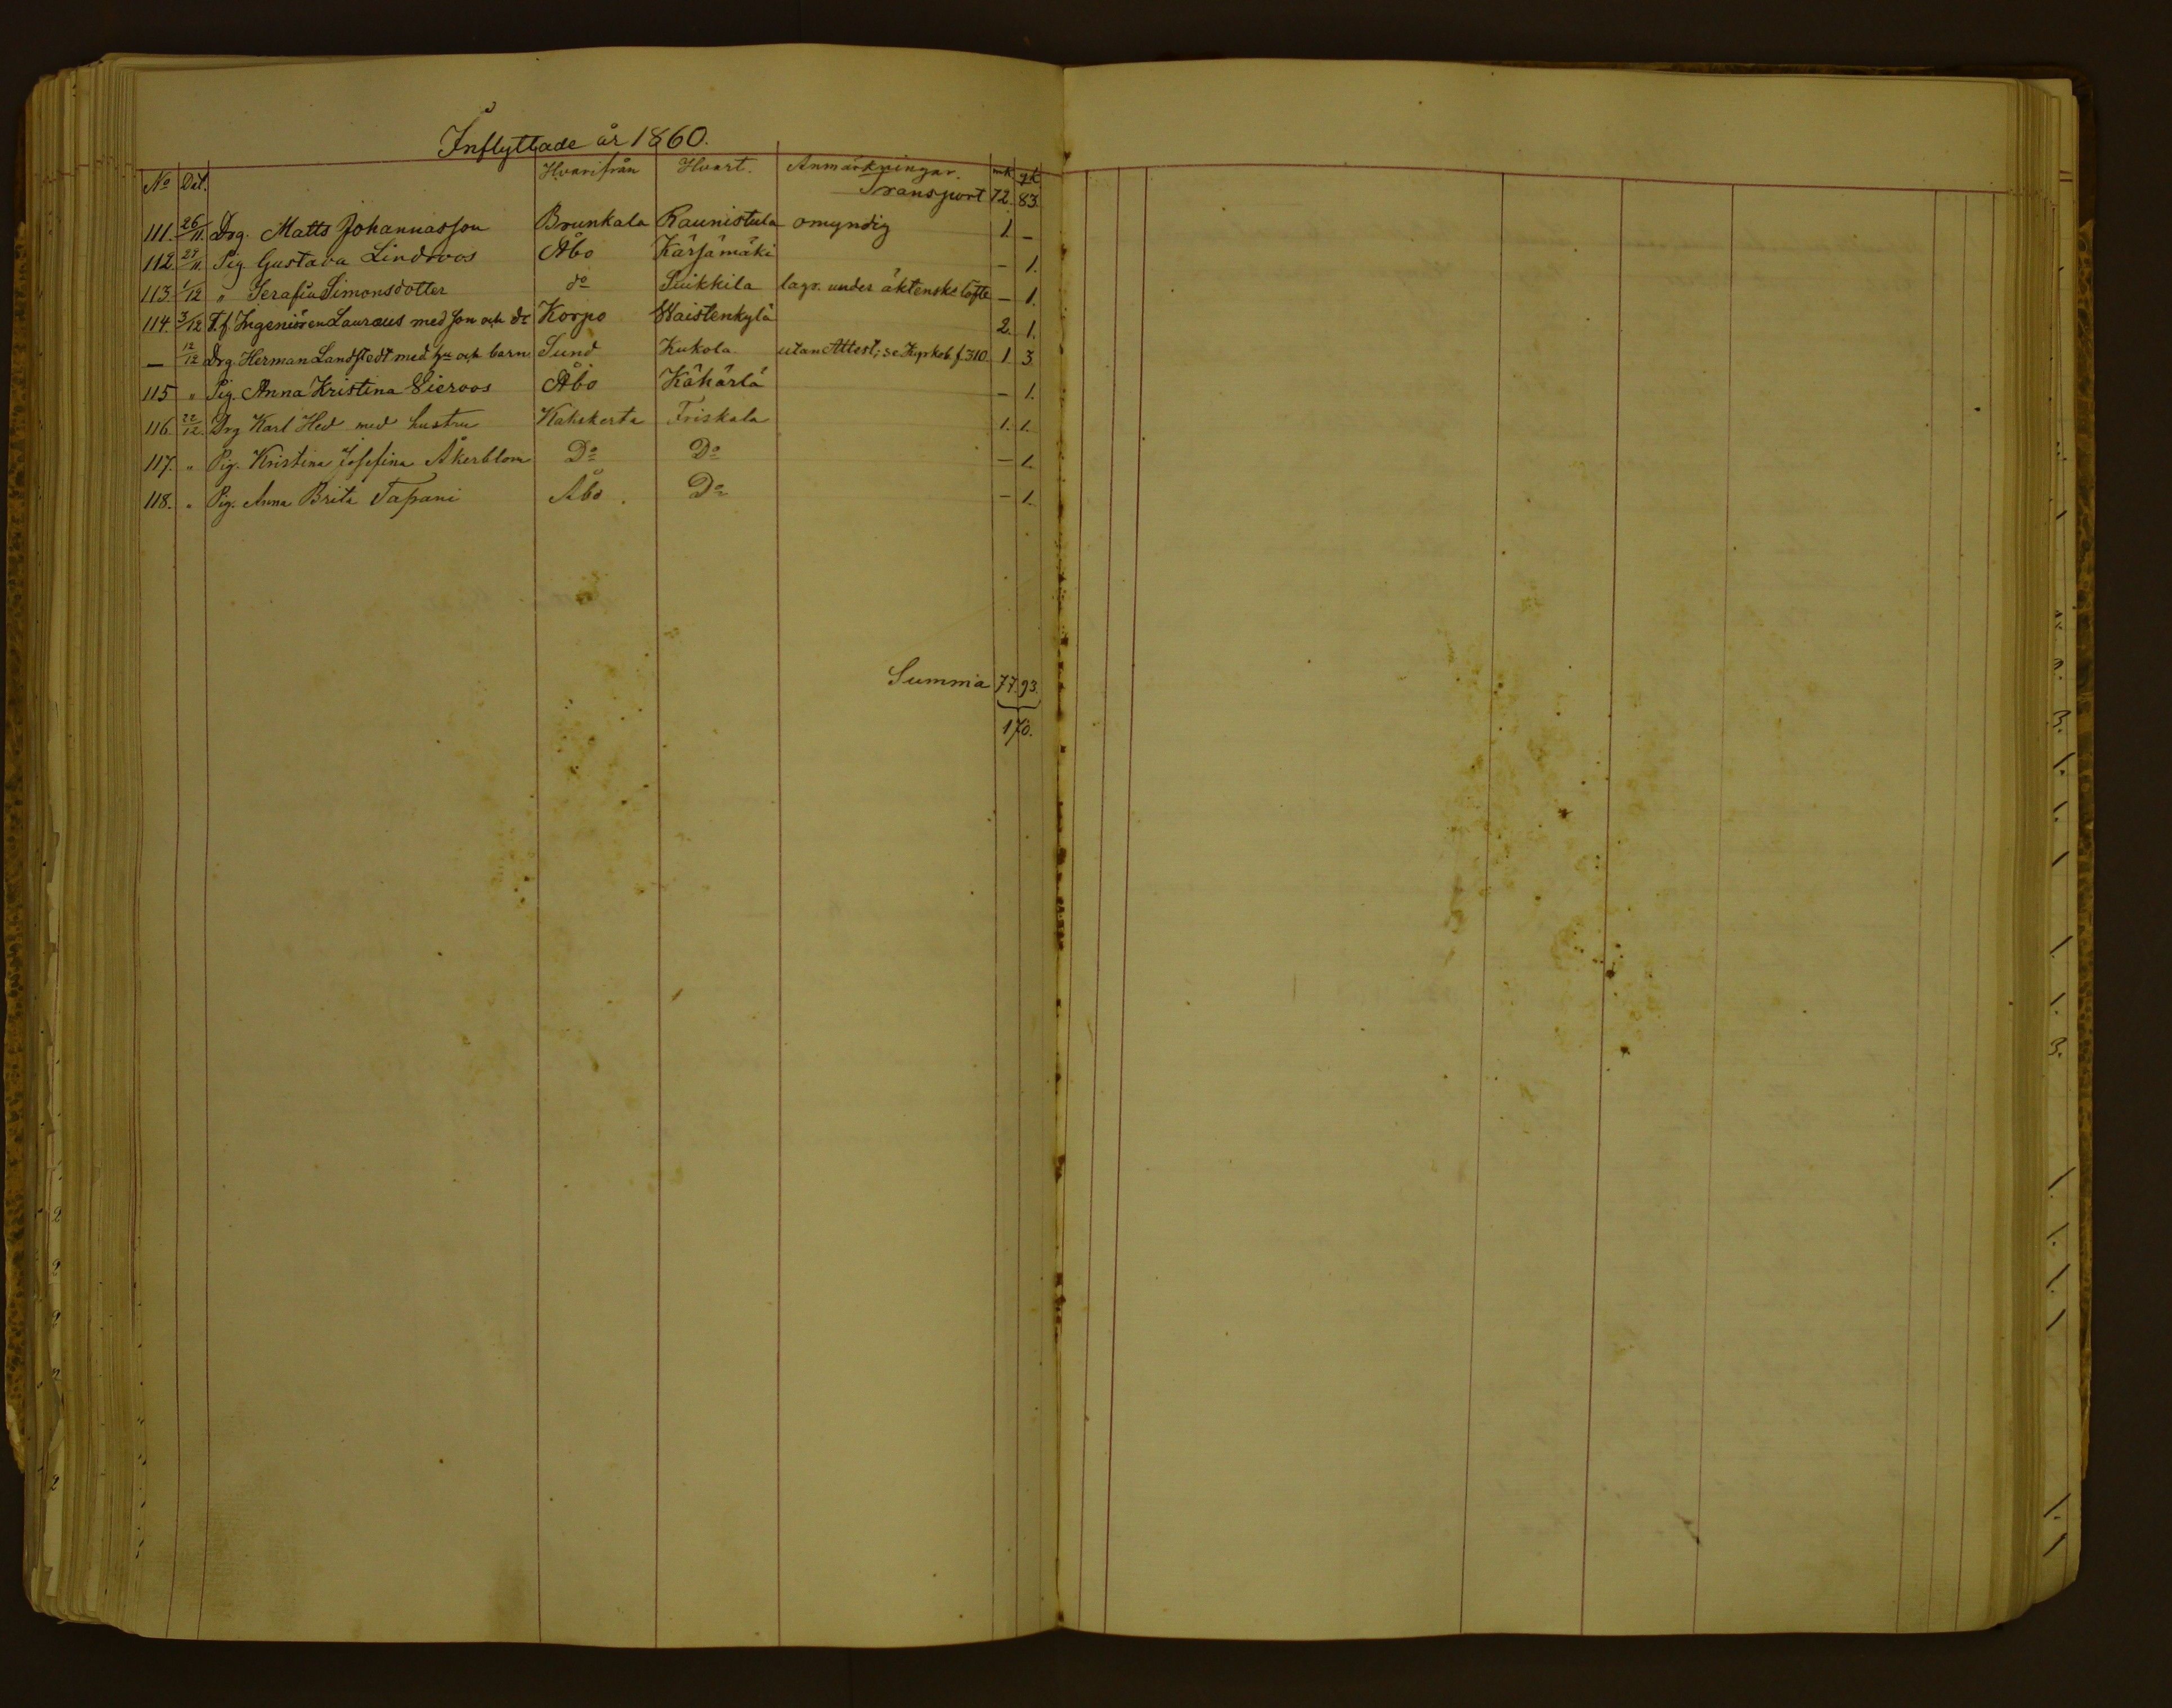 Inflyttade år 1860.
No Dat. Hvarifrån Hvart. Anmärkningar. mk. qk.
Transport 72. 83.
111. 26/11. Drg. Matts Johannasson Brunkala Raunistula omyndig 1. –
112. 29/11. Pig Gustava Lindroos Åbo Kärsämäki – 1.
113. 1/12 " Serafia Simonsdotter do Suikkila lagv. under äktensks löfte – 1.
114. 3/12 T.f. Ingeniören Lauraeus med son och dr Korpo Waistenkylä 2. 1.
– 12/12 Drg. Herman Landstedt med hu och barn Sund Kukola utan Attest; se Kyrkob. f. 310. 1. 3
115 " Pig. Anna Kristina Vieroos Åbo Kähärlä – 1.
116. 22/12. Drg Karl Hed med hustru Kakskerta Friskala 1. 1.
117. " Pig. Kristina Josefina Åkerblom Do Do – 1.
118. " Pig. Anna Brita Tapani Åbo. Do – 1.
Summa 77. 93.
170.